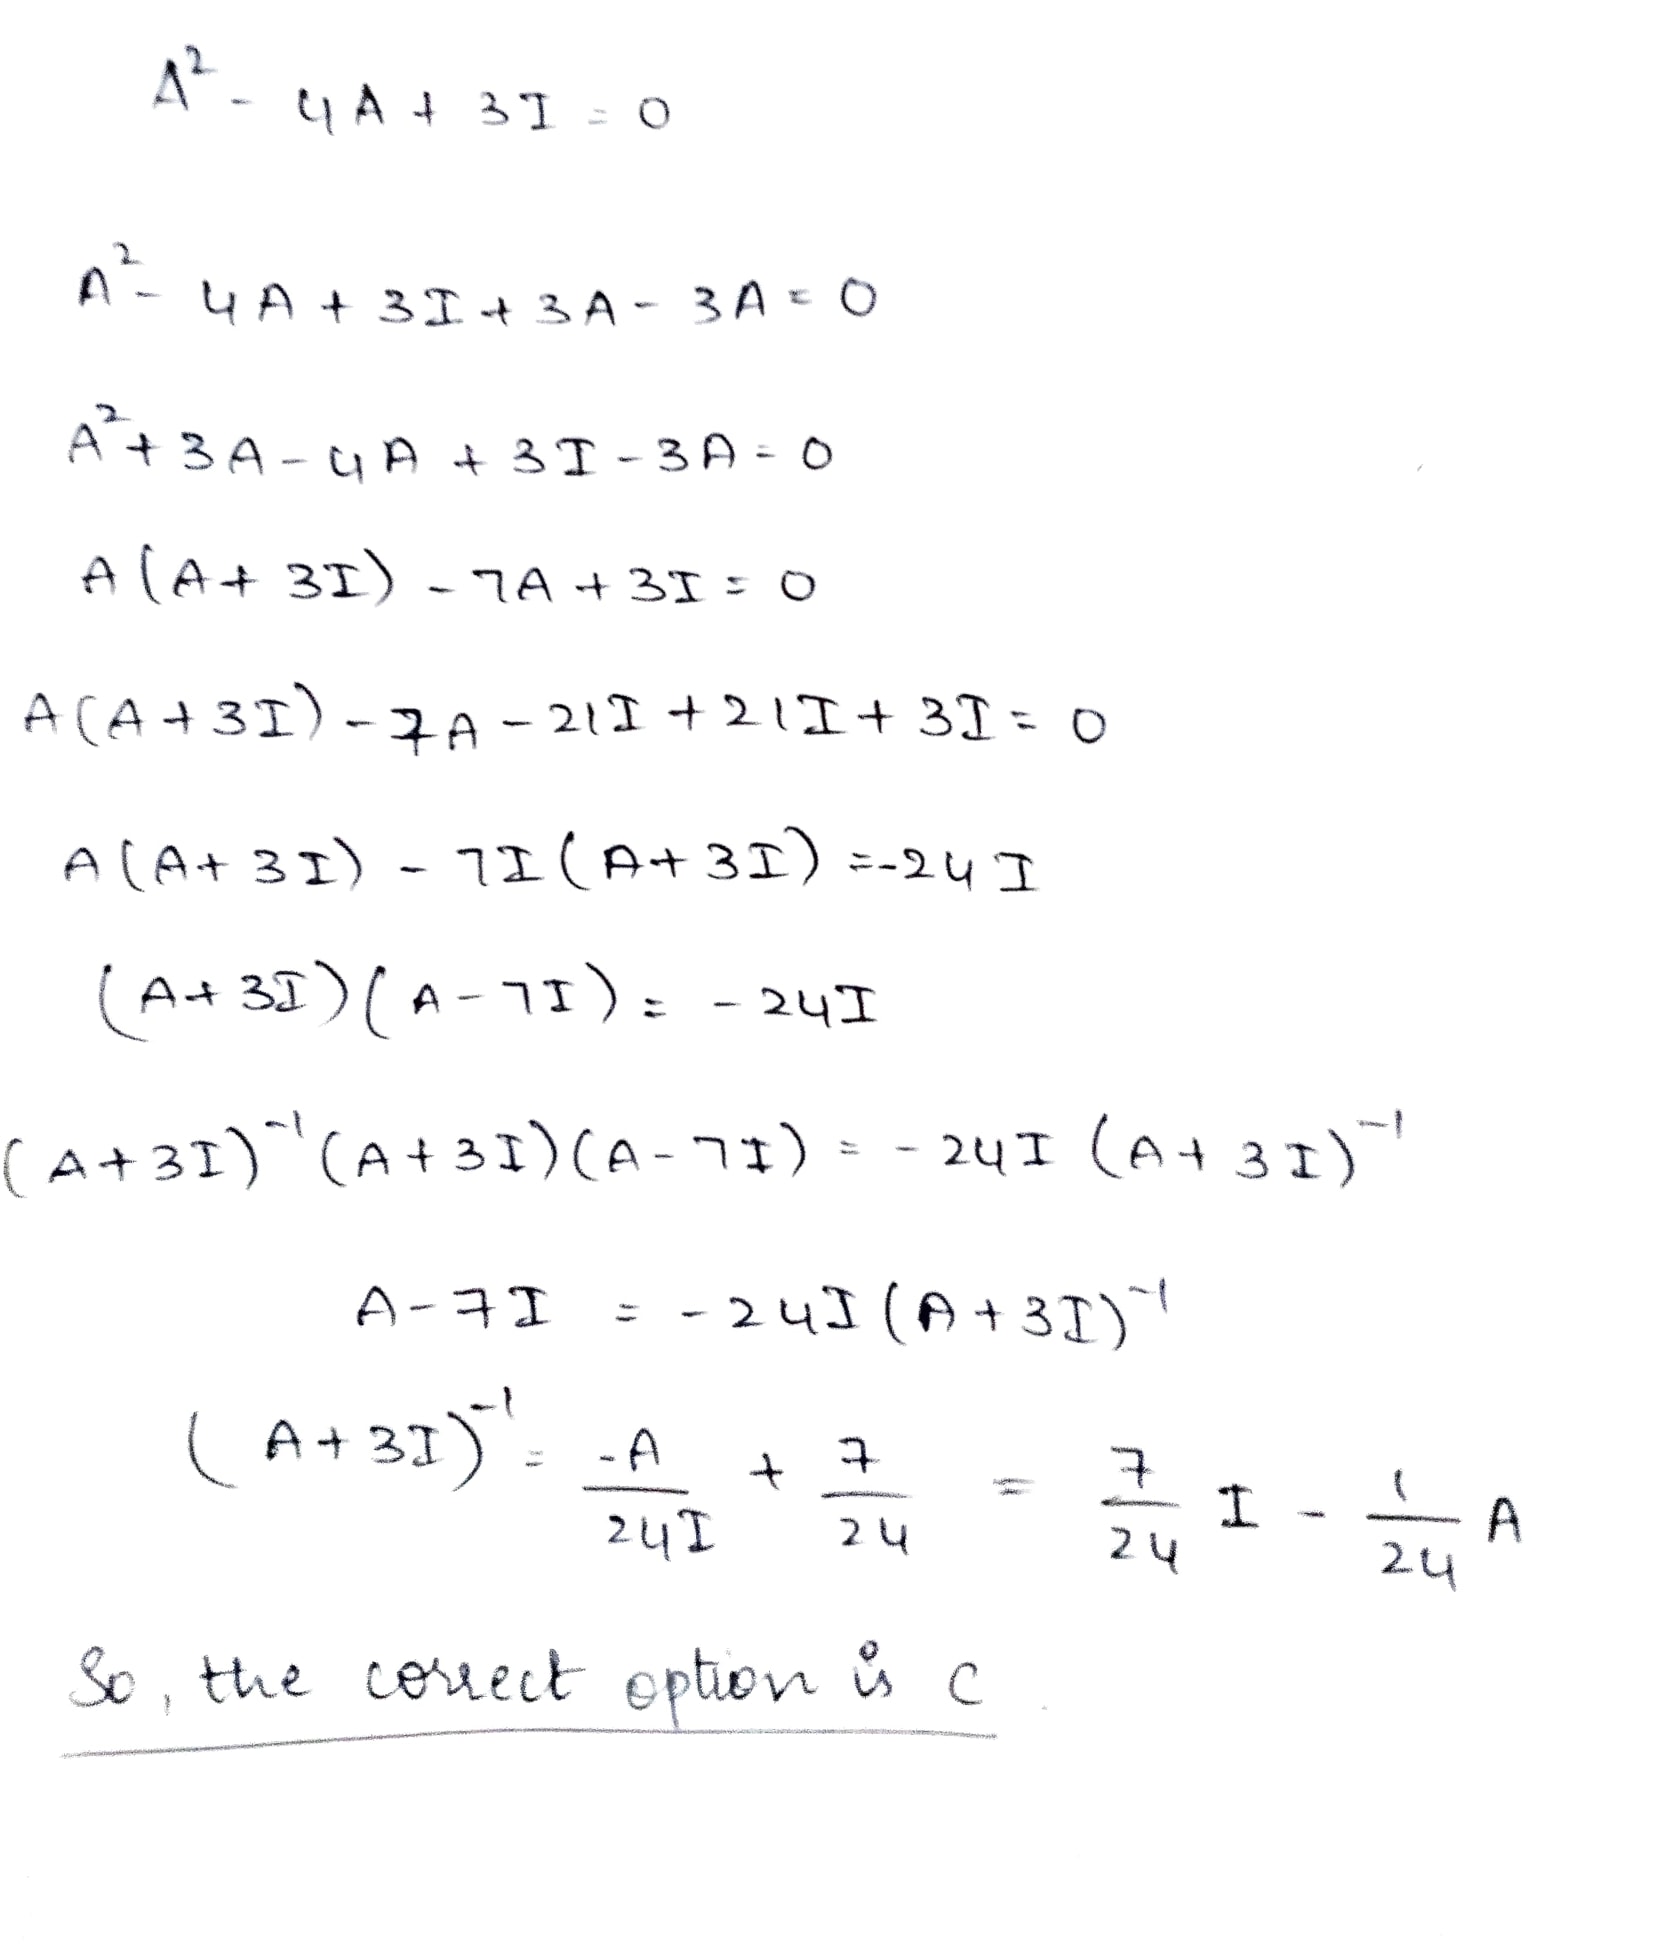 A² - 4A + 3I = 0
A² - 4A + 3I + 3A - 3A = 0
A² + 3A - 4A + 3I - 3A = 0
A(A + 3I) - 7A + 3I = 0
A(A + 3I) - 7A - 21I + 21I + 3I = 0
A(A + 3I) - 7I(A + 3I) = -24I
(A + 3I)(A - 7I) = -24I
(A + 3I)⁻¹(A + 3I)(A - 7I) = -24I (A + 3I)⁻¹
A - 7I = -24I(A + 3I)⁻¹
(A + 3I)⁻¹ = -A/24I + 7/24 = 7/24 I - 1/24 A
So, the correct option is C